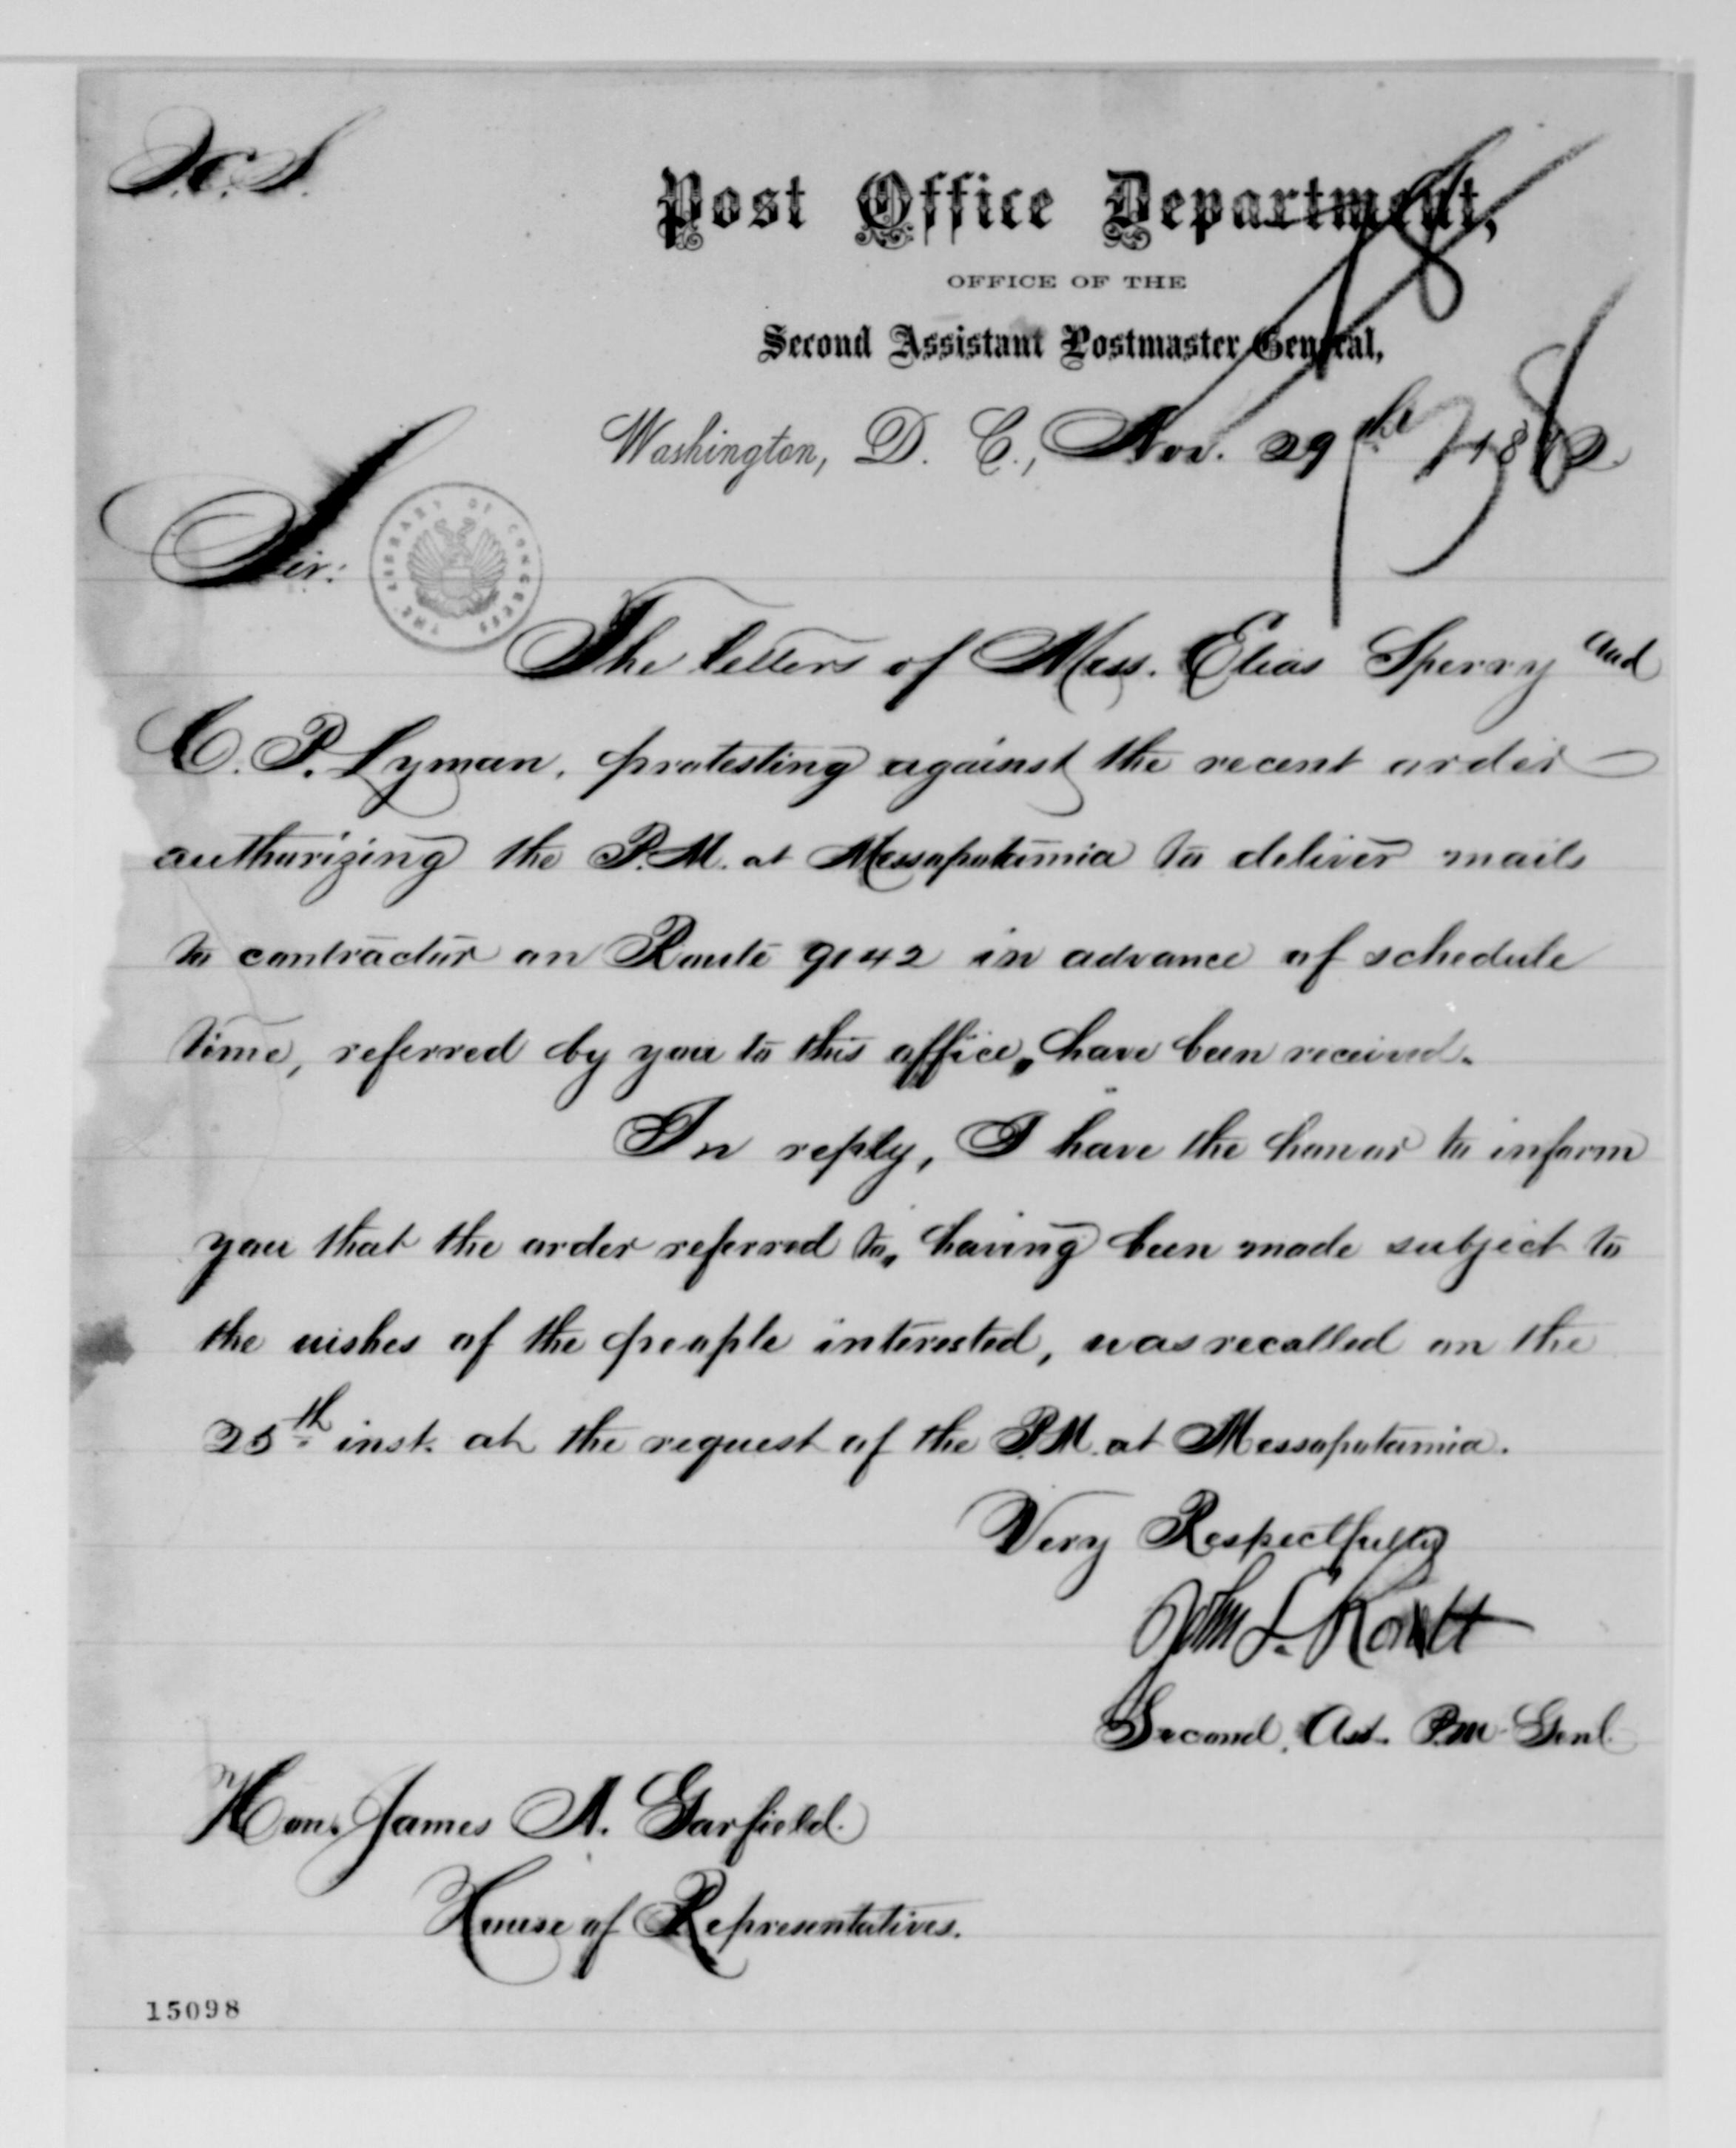 Post Office Department,
OFFICE OF THE
Second Assistant Postmaster General,
Washington, D. C., Nov. 29th 1872
Sir:
THE LIBRARY OF CONGRESS
The letters of Mess. Elias Sperry and
C. P. Lyman, protesting against the recent order
authorizing the P.M. at Messopotamia to deliver mails
to contractor on Route 9142 in advance of schedule
time, referred by you to this office, have been received.
In reply, I have the honor to inform
you that the order referred to, having been made subject to
the wishes of the people interested, was recalled on the
25th inst. at the request of the P.M. at Messopotamia.
Very Respectfully
John L. Routt
Second Asst. P.M. Genl.
Hon. James A. Garfield.
House of Representatives.
15098